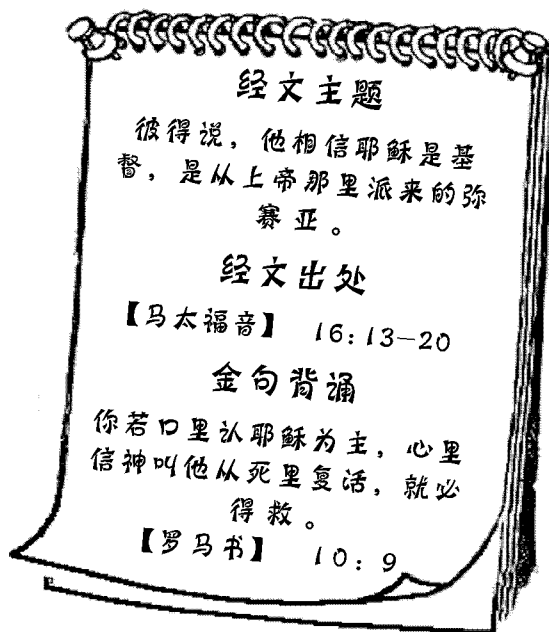 经文主题
彼得说，他相信耶稣是基
督，是从上帝那里派来的弥
赛亚。
经文出处
【马太福音】 16：13-20
金句背诵
你若口里认耶稣为主，心里
信神叫他从死里复活，就必
得救。
【罗马书】 10：9